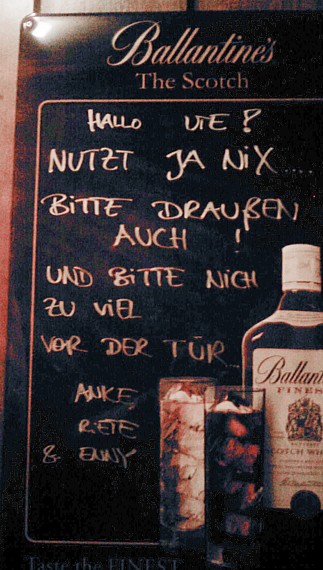 Ballantine's
The Scotch
HALLO UTE ?
NUTZT JA NIX....
BITTE DRAUßEN
AUCH !
UND BITTE NICH
ZU VIEL
VOR DER TÜR...
ANKE,
RIETE
& ENNY
Ballant
FINES
SCOTCH WHI
Taste the FINEST